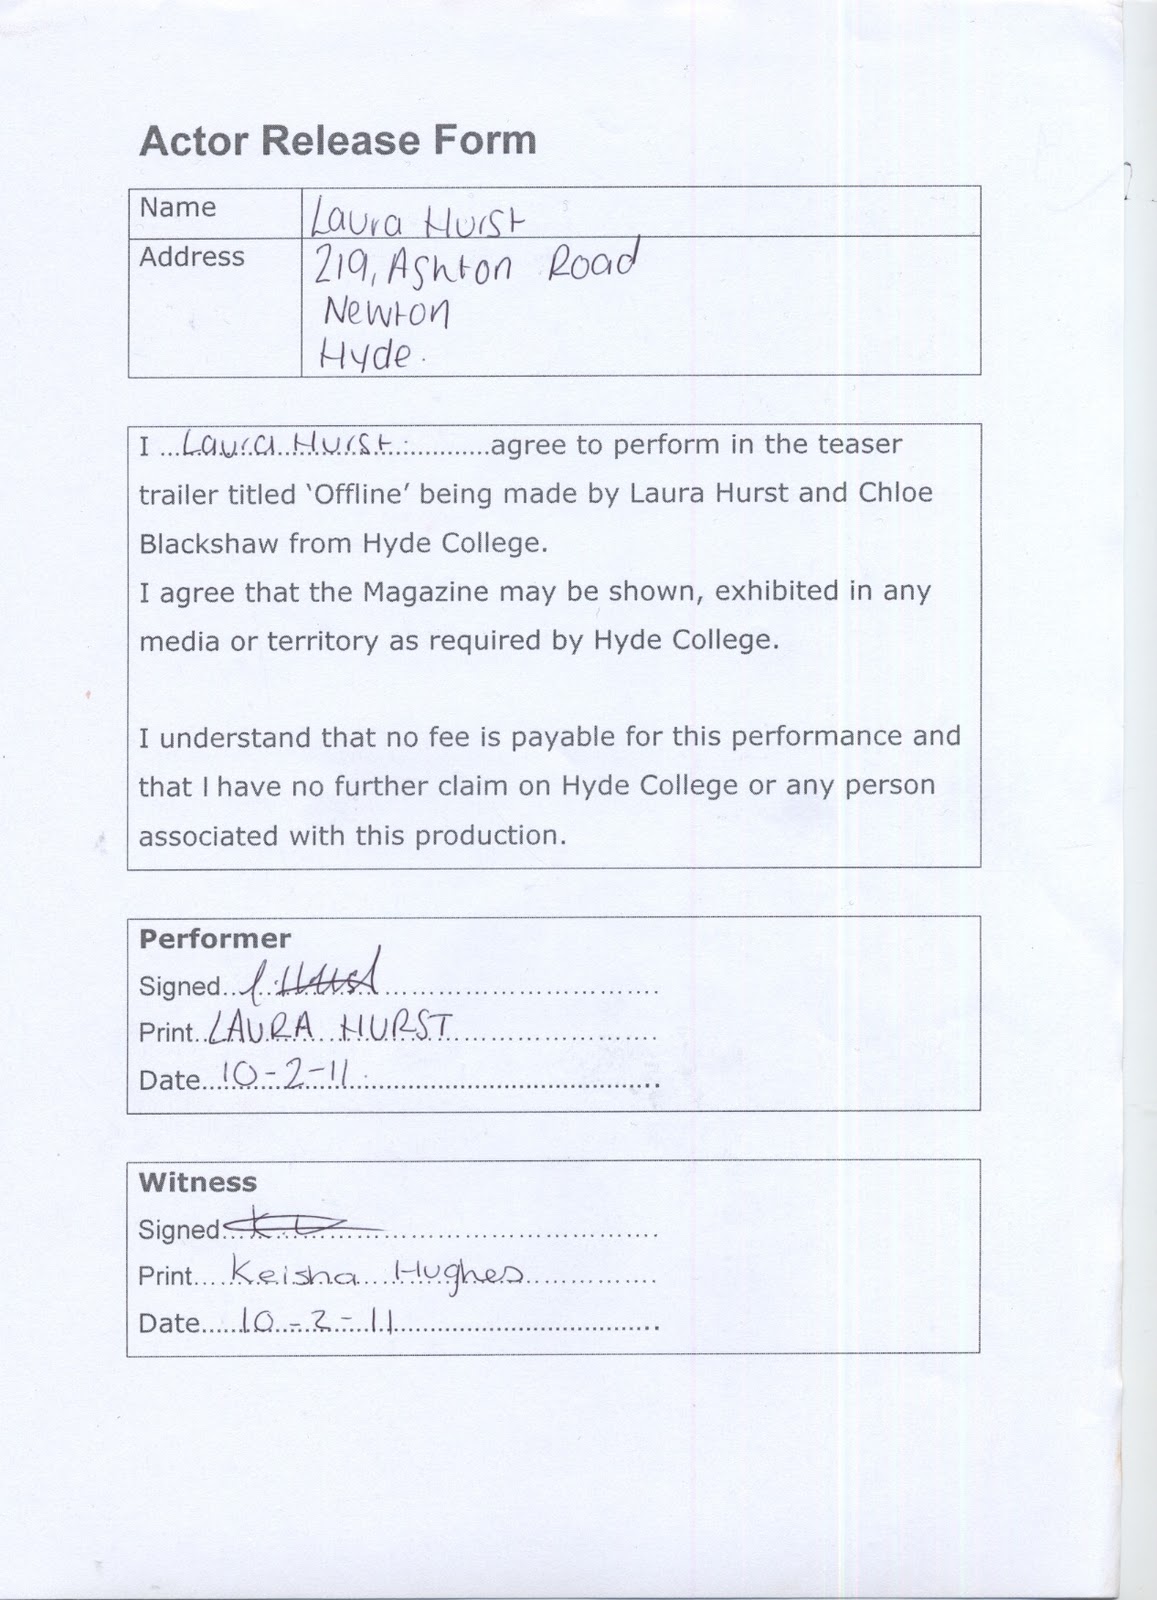 Actor Release Form
Name Laura Hurst
Address 219, Ashton Road
Newton
Hyde.
I ...Laura Hurst...........agree to perform in the teaser
trailer titled ‘Offline’ being made by Laura Hurst and Chloe
Blackshaw from Hyde College.
I agree that the Magazine may be shown, exhibited in any
media or territory as required by Hyde College.
I understand that no fee is payable for this performance and
that I have no further claim on Hyde College or any person
associated with this production.
Performer
Signed...l.Hurst..............................
Print..LAURA HURST..............................
Date...10-2-11..............................
Witness
Signed..............................
Print....Keisha Hughes................
Date......10-2-11..............................